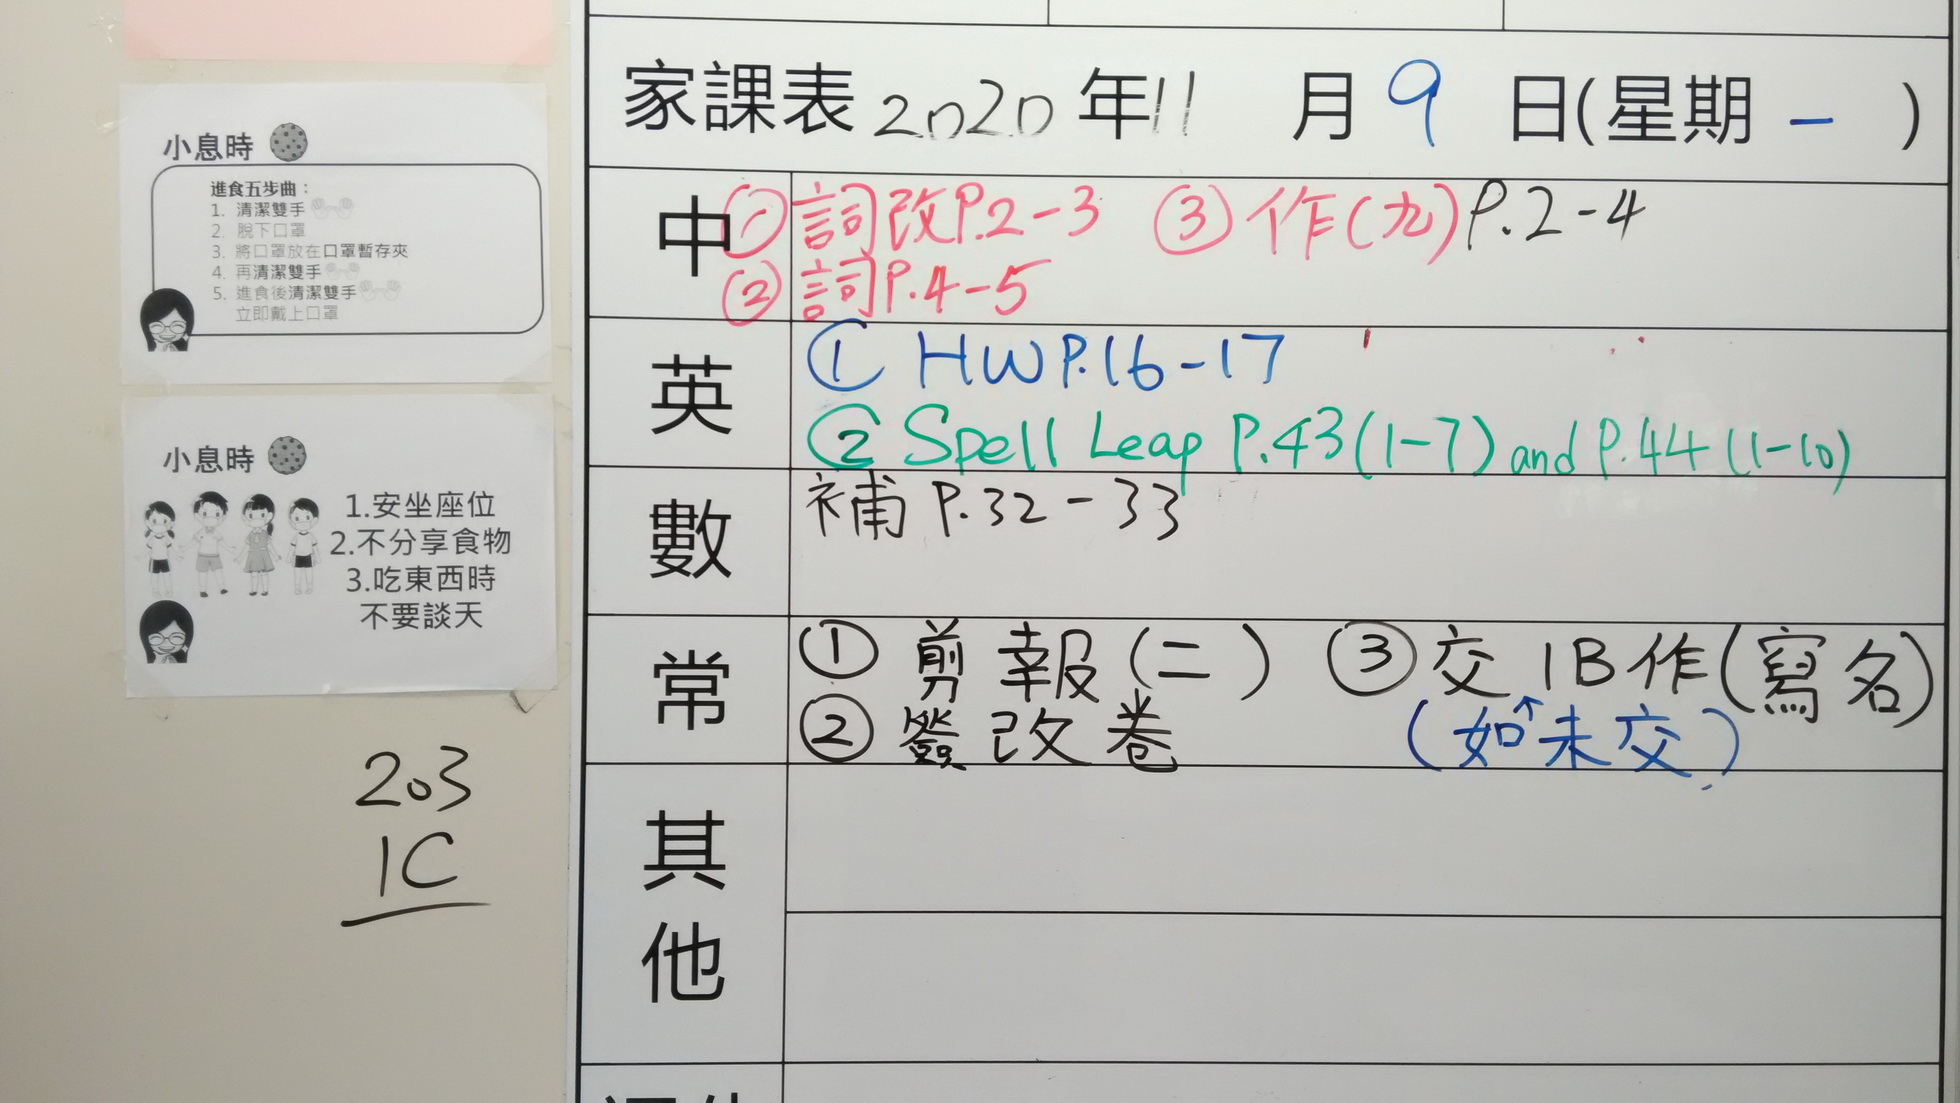 小息時
進食五步曲：
1. 清潔雙手
2. 脫下口罩
3. 將口罩放在口罩暫存夾
4. 再清潔雙手
5. 進食後清潔雙手
立即戴上口罩
小息時
1.安坐座位
2.不分享食物
3.吃東西時
不要談天
203
1C
家課表 2020 年 11 月 9 日(星期 一 )
中 ① 詞改P.2-3 ③ 作(九)P.2-4
② 詞P.4-5
英 ① HW P.16-17
② Spell Leap P.43(1-7) and P.44(1-10)
數 補 P.32-33
常 ① 剪報(二) ③ 交1B作(寫名)
② 簽改卷 (如未交)
其他